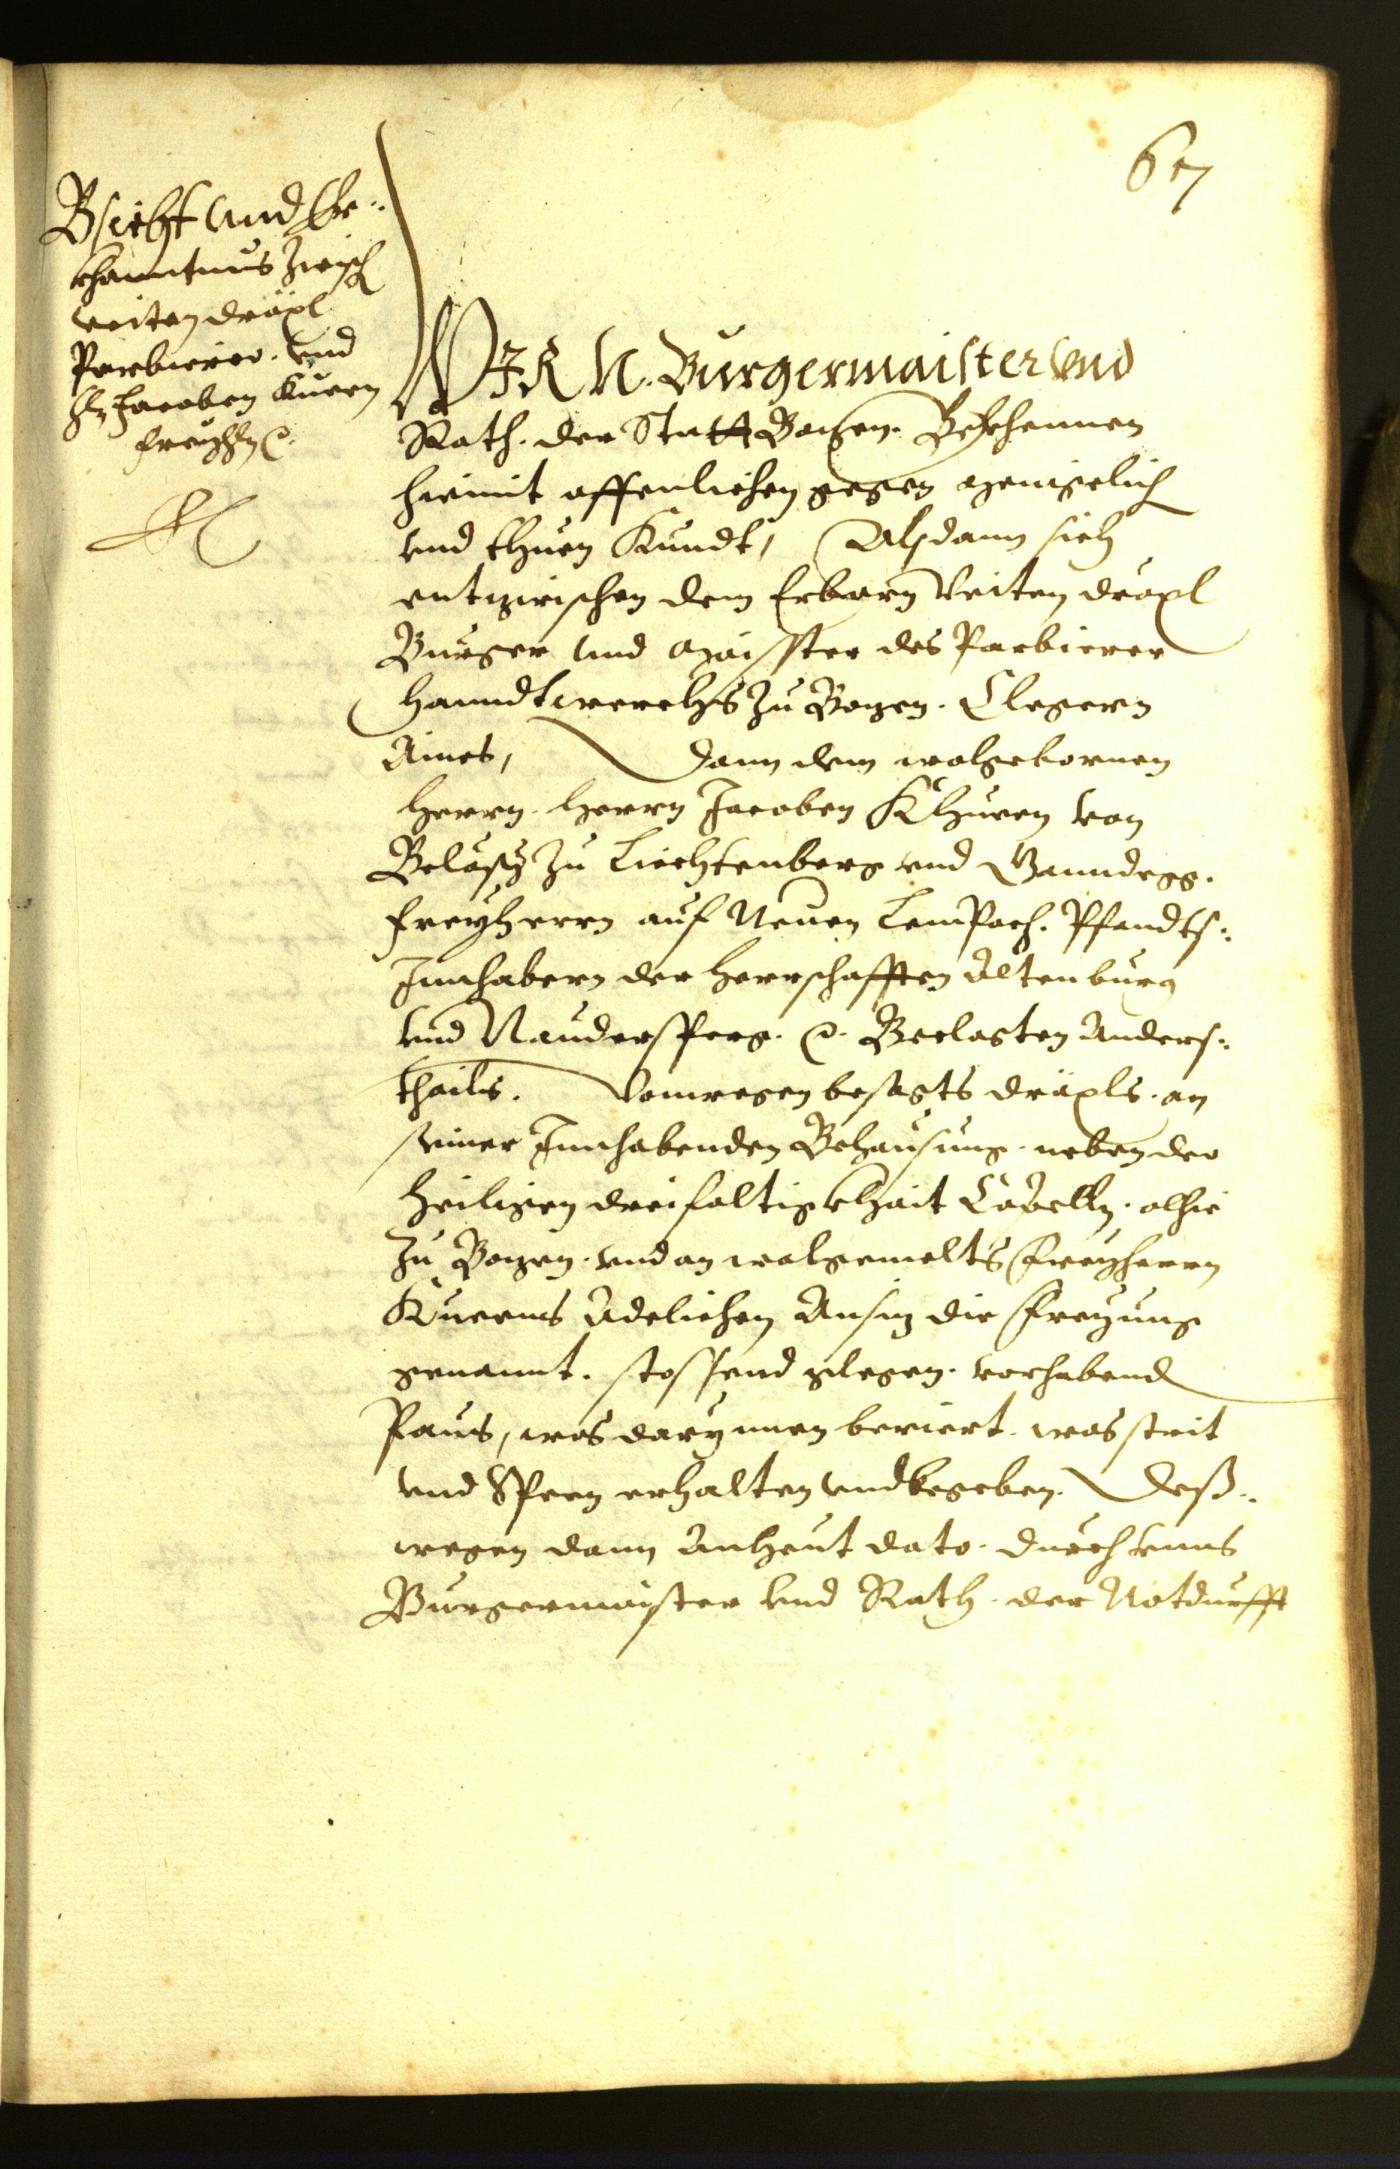 67
Bsicht und Er¬
khanntnus Zwisch
veiten dräxl
Parbierer. Und
Hr Jacoben Kuen
freyhr etc.
WIR N. Burgermaister Und
Rath. der Statt Bozen. Bekhennen
hiemit offenlichen gegen menigelich
und thuen Kundt, Alsdann sich
entzwischen dem Erbarn Veiten dräxl
Burger und Maisster des Parbierer
Hanndtwerchs Zu Bozen. Clegern
Aines, Dann dem wolgebornen
Herrn. Herrn Jacoben Khuen von
Belasy zu Liechtenberg und Ganndegg.
Freyherrn auf Neuen LemPach. Pfandts¬
Innhabern der Herrschafften Altenburg
und NaudersPerg. etc. Beclagten Anders¬
thails. Vonwegen besagts dräxls. an
seiner Innhabenden Behausung. neben der
Heiligen dreifaltigkhait Capelln. alhie
Zu Bozen. und an wolgemelts Freyherrn
Kuenns Adelichen Ansiz die Freyung
genannt. stossend glegen. vorhabend
Paus, was darynnen beriert. was streit
und Speen erhalten und begeben. Deß¬
wegen dann Anheut dato. durch unns
Burgermaister und Rath. der Notdurfft